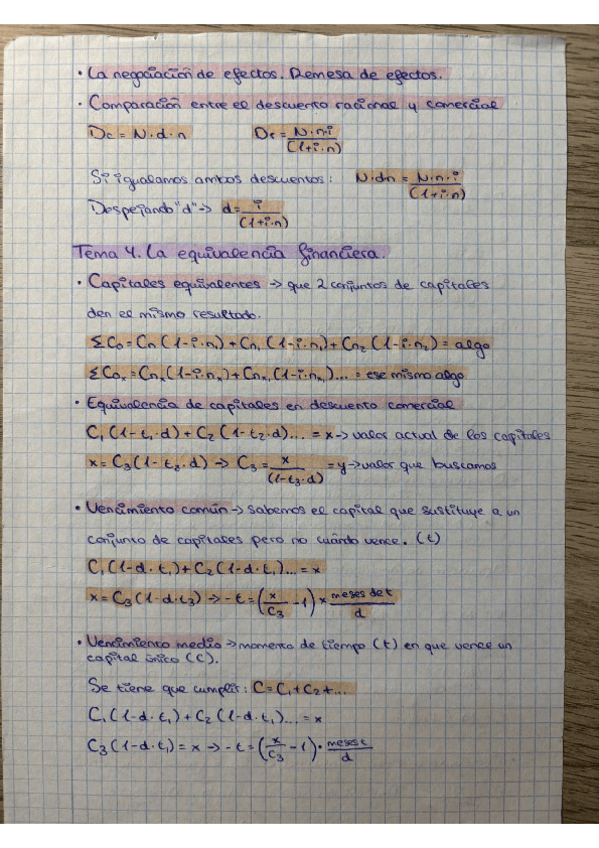 · La negociación de efectos. Remesa de efectos.
· Comparación entre el descuento racional y comercial
Dc = N·d·n Dr = N·n·i / (1+i·n)
Si igualamos ambos descuentos: N·dn = N·n·i / (1+i·n)
Despejando "d" -> d = i / (1+i·n)
Tema 4. La equivalencia financiera.
· Capitales equivalentes -> que 2 conjuntos de capitales
den el mismo resultado.
ΣC₀ = Cn (1-i·n) + Cn₁ (1-i·n₁) + Cn₂ (1-i·n₂) = algo
ΣC₀ₓ = Cnₓ (1-i·nₓ) + Cnₓ, (1-i·nₓ,)... = ese mismo algo
· Equivalencia de capitales en descuento comercial
C₁ (1-t₁·d) + C₂ (1-t₂·d)... = x -> valor actual de los capitales
x = C₃ (1-t₃·d) -> C₃ = x / (1-t₃·d) = y -> valor que buscamos
· Vencimiento común -> sabemos el capital que sustituye a un
conjunto de capitales pero no cuándo vence. (t)
C₁ (1-d·t₁) + C₂ (1-d·t₁)... = x
x = C₃ (1-d·t₃) -> -t = (x/C₃ - 1) × meses de t / d
· Vencimiento medio -> momento de tiempo (t) en que vence un
capital único (C).
Se tiene que cumplir: C = C₁ + C₂ + ...
C₁ (1-d·t₁) + C₂ (1-d·t₁)... = x
C₃ (1-d·t₁) = x -> -t = (x/C₃ - 1) · meses t / d